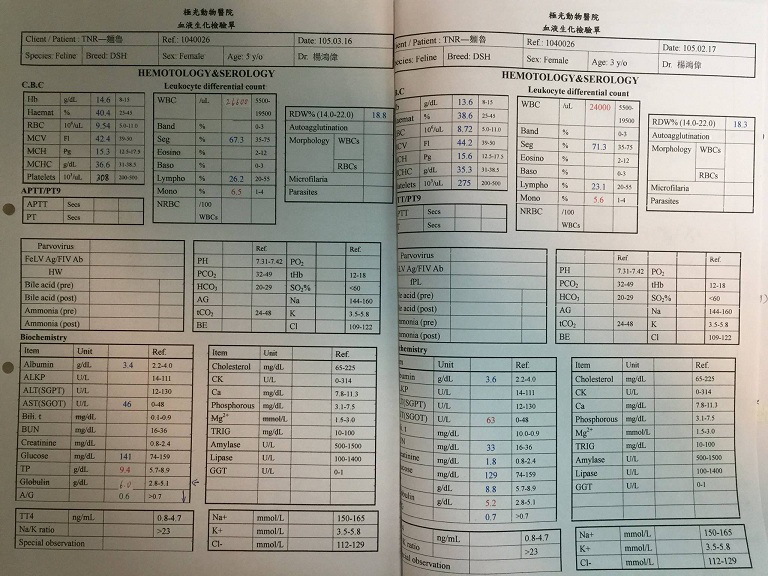 極光動物醫院
血液生化檢驗單
Client / Patient : TNR—麵魯 Ref.: 1040026 Date: 105.03.16
Species: Feline Breed: DSH Sex: Female Age: 5 y/o Dr. 楊鴻偉
HEMOTOLOGY&SEROLOGY
C.B.C Leukocyte differential count
Hb g/dL 14.6 8-15
Haemat % 40.4 25-45
RBC 10⁶/uL 9.54 5.0-11.0
MCV Fl 42.4 39-50
MCH Pg 15.3 12.5-17.5
MCHC g/dL 36.6 31-38.5
Platelets 10³/uL 308 200-500
APTT/PT9
APTT Secs
PT Secs
WBC /uL 26600 5500-
19500
Band % 0-3
Seg % 67.3 35-75
Eosino % 2-12
Baso % 0-3
Lympho % 26.2 20-55
Mono % 6.5 1-4
NRBC /100
WBCs
RDW% (14.0-22.0) 18.8
Autoagglutination
Morphology WBCs
RBCs
Microfilaria
Parasites
Parvovirus
FeLV Ag/FIV Ab
HW
Bile acid (pre)
Bile acid (post)
Ammonia (pre)
Ammonia (post)
Ref. Ref
PH 7.31-7.42 PO₂
PCO₂ 32-49 tHb 12-18
HCO₃ 20-29 SO₂% <60
AG Na 144-160
tCO₂ 24-48 K 3.5-5.8
BE Cl 109-122
Biochemistry
Item Unit Ref.
Albumin g/dL 3.4 2.2-4.0
ALKP U/L 14-111
ALT(SGPT) U/L 12-130
AST(SGOT) U/L 46 0-48
Bili. t mg/dL 0.1-0.9
BUN mg/dL 16-36
Creatinine mg/dL 0.8-2.4
Glucose mg/dL 141 74-159
TP g/dL 9.4 5.7-8.9
Globulin g/dL 6.0 2.8-5.1
A/G 0.6 >0.7
Item Unit Ref.
Cholesterol mg/dL 65-225
CK U/L 0-314
Ca mg/dL 7.8-11.3
Phosphorous mg/dL 3.1-7.5
Mg²⁺ mmol/L 1.5-3.0
TRIG mg/dL 10-100
Amylase U/L 500-1500
Lipase U/L 100-1400
GGT U/L 0-1
TT4 ng/mL 0.8-4.7
Na/K ratio >23
Special observation
Na+ mmol/L 150-165
K+ mmol/L 3.5-5.8
Cl- mmol/L 112-129
極光動物醫院
血液生化檢驗單
ient / Patient : TNR—麵魯 Ref.: 1040026 Date: 105.02.17
pecies: Feline Breed: DSH Sex: Female Age: 3 y/o Dr. 楊鴻偉
HEMOTOLOGY&SEROLOGY
.B.C Leukocyte differential count
Hb g/dL 13.6 8-15
Haemat % 38.6 25-45
RBC 10⁶/uL 8.72 5.0-11.0
MCV Fl 44.2 39-50
MCH Pg 15.6 12.5-17.5
MCHC g/dL 35.3 31-38.5
Platelets 10³/uL 275 200-500
TT/PT9
APTT Secs
PT Secs
WBC /uL 24000 5500-
19500
Band % 0-3
Seg % 71.3 35-75
Eosino % 2-12
Baso % 0-3
Lympho % 23.1 20-55
Mono % 5.6 1-4
NRBC /100
WBCs
RDW% (14.0-22.0) 18.3
Autoagglutination
Morphology WBCs
RBCs
Microfilaria
Parasites
Parvovirus
LV Ag/FIV Ab
fPL
ile acid (pre)
ile acid (post)
mmonia (pre)
mmonia (post)
Ref. Ref
PH 7.31-7.42 PO₂
PCO₂ 32-49 tHb 12-18
HCO₃ 20-29 SO₂% <60
AG Na 144-160
tCO₂ 24-48 K 3.5-5.8
BE Cl 109-122
chemistry
Unit Ref.
bumin g/dL 3.6 2.2-4.0
KP U/L 14-111
(SGPT) U/L 12-130
(SGOT) U/L 63 0-48
. t mg/dL 10.0-0.9
N mg/dL 33 16-36
eatinine mg/dL 1.8 0.8-2.4
cose mg/dL 129 74-159
g/dL 8.8 5.7-8.9
obulin g/dL 5.2 2.8-5.1
0.7 >0.7
Item Unit Ref.
Cholesterol mg/dL 65-225
CK U/L 0-314
Ca mg/dL 7.8-11.3
Phosphorous mg/dL 3.1-7.5
Mg²⁺ mmol/L 1.5-3.0
TRIG mg/dL 10-100
Amylase U/L 500-1500
Lipase U/L 100-1400
GGT U/L 0-1
ng/mL 0.8-4.7
K ratio >23
cial observation
Na+ mmol/L 150-165
K+ mmol/L 3.5-5.8
Cl- mmol/L 112-129